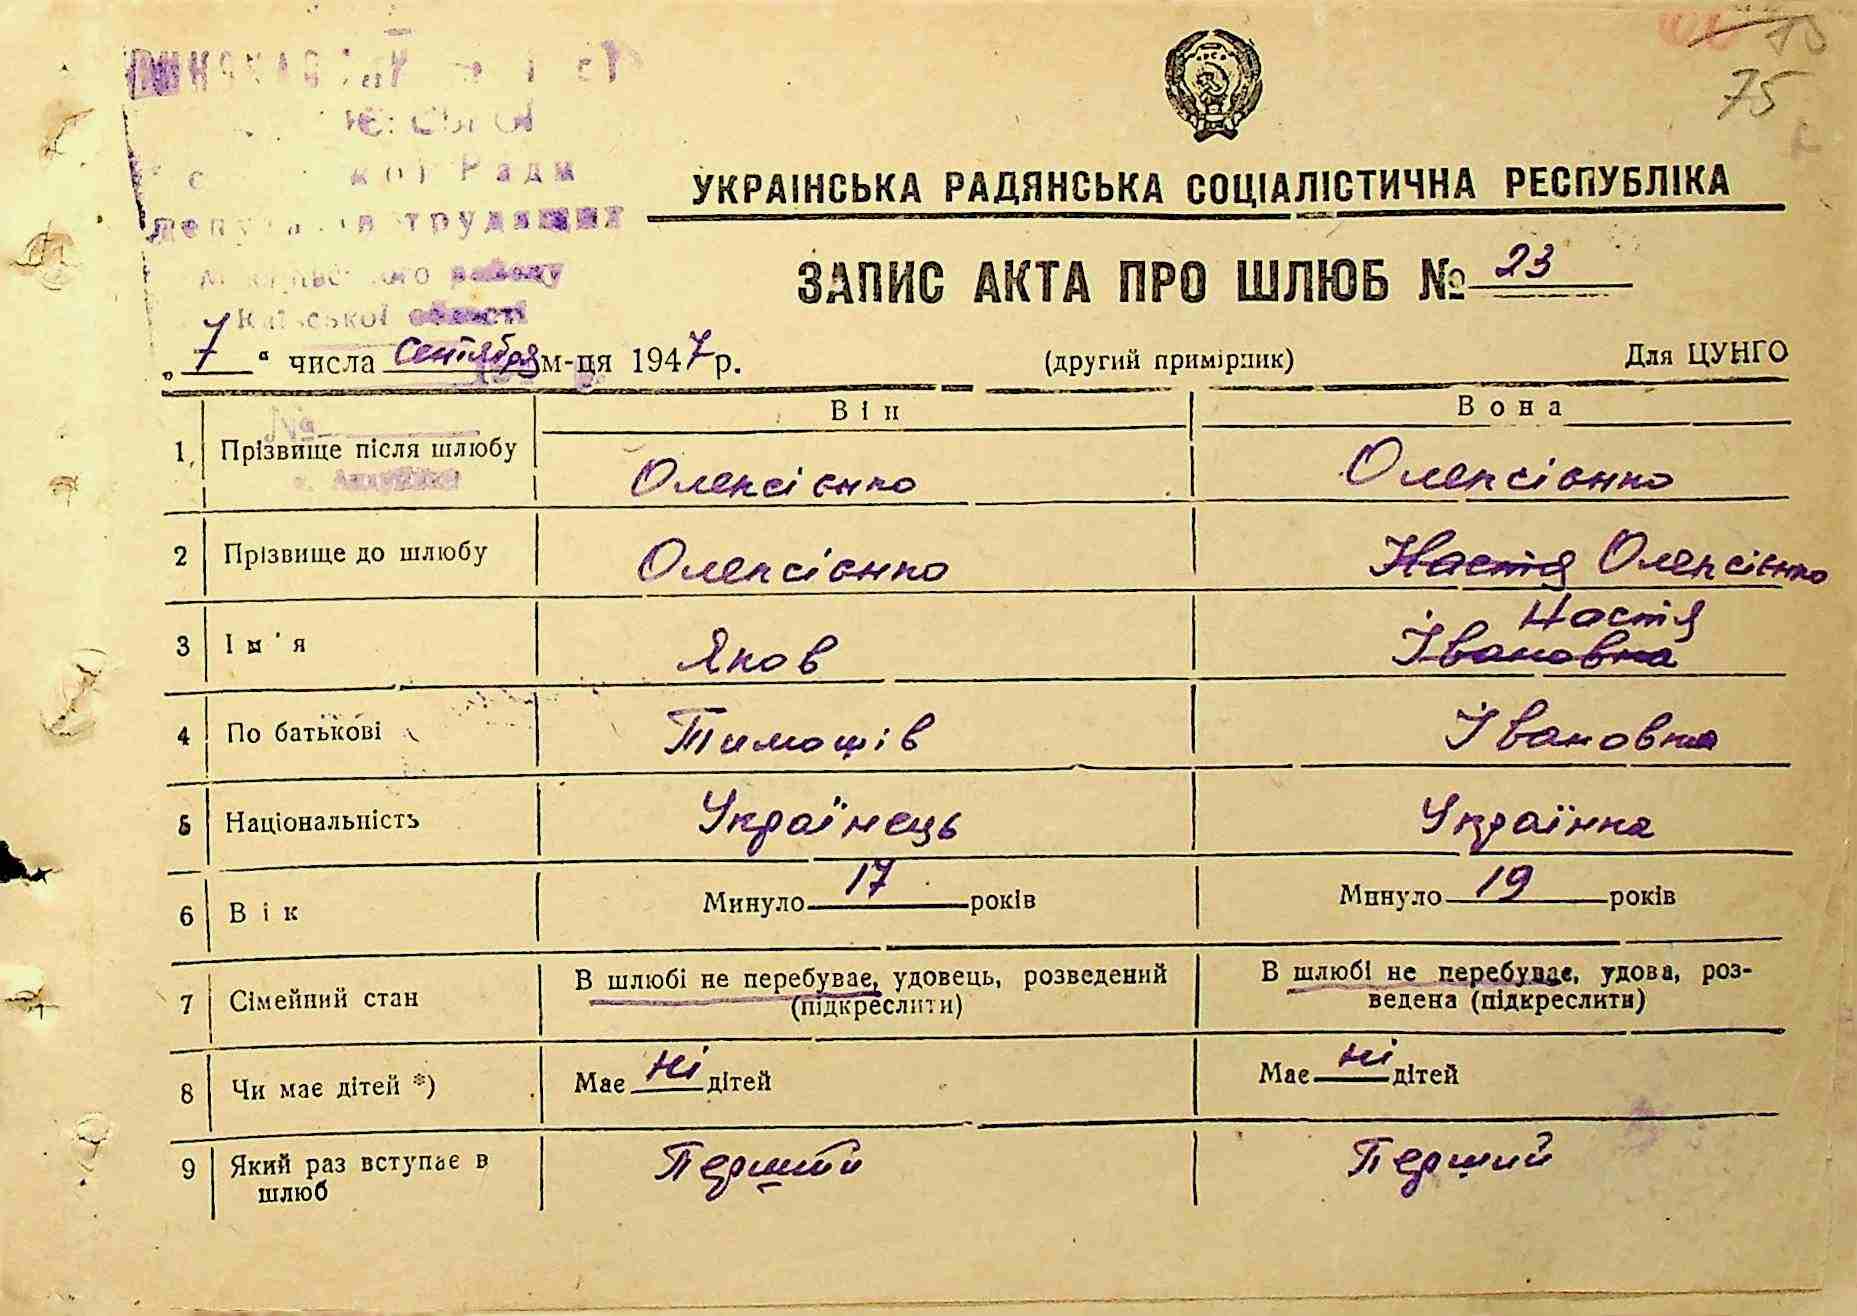 75
УКРАЇНСЬКА РАДЯНСЬКА СОЦІАЛІСТИЧНА РЕСПУБЛІКА
Ради
трудящих
району
області
ЗАПИС АКТА ПРО ШЛЮБ № 23
„7“ числа Сентября м-ця 1947 р. (другий примірник) Для ЦУНГО
№
Він Вона
1. Прізвище після шлюбу Олексієнко Олексієнко
2 Прізвище до шлюбу Олексієнко Настя Олексієнко
Настя
3 Ім'я Яков Івановна
4 По батькові Тимошів Івановна
5 Національність Українець Українка
6 Вік Минуло 17 років Минуло 19 років
7 Сімейний стан В шлюбі не перебуває, удовець, розведений (підкреслити) В шлюбі не перебуває, удова, роз-
ведена (підкреслити)
8 Чи має дітей *) Має ні дітей Має ні дітей
9 Який раз вступає в Перший Перший
шлюб